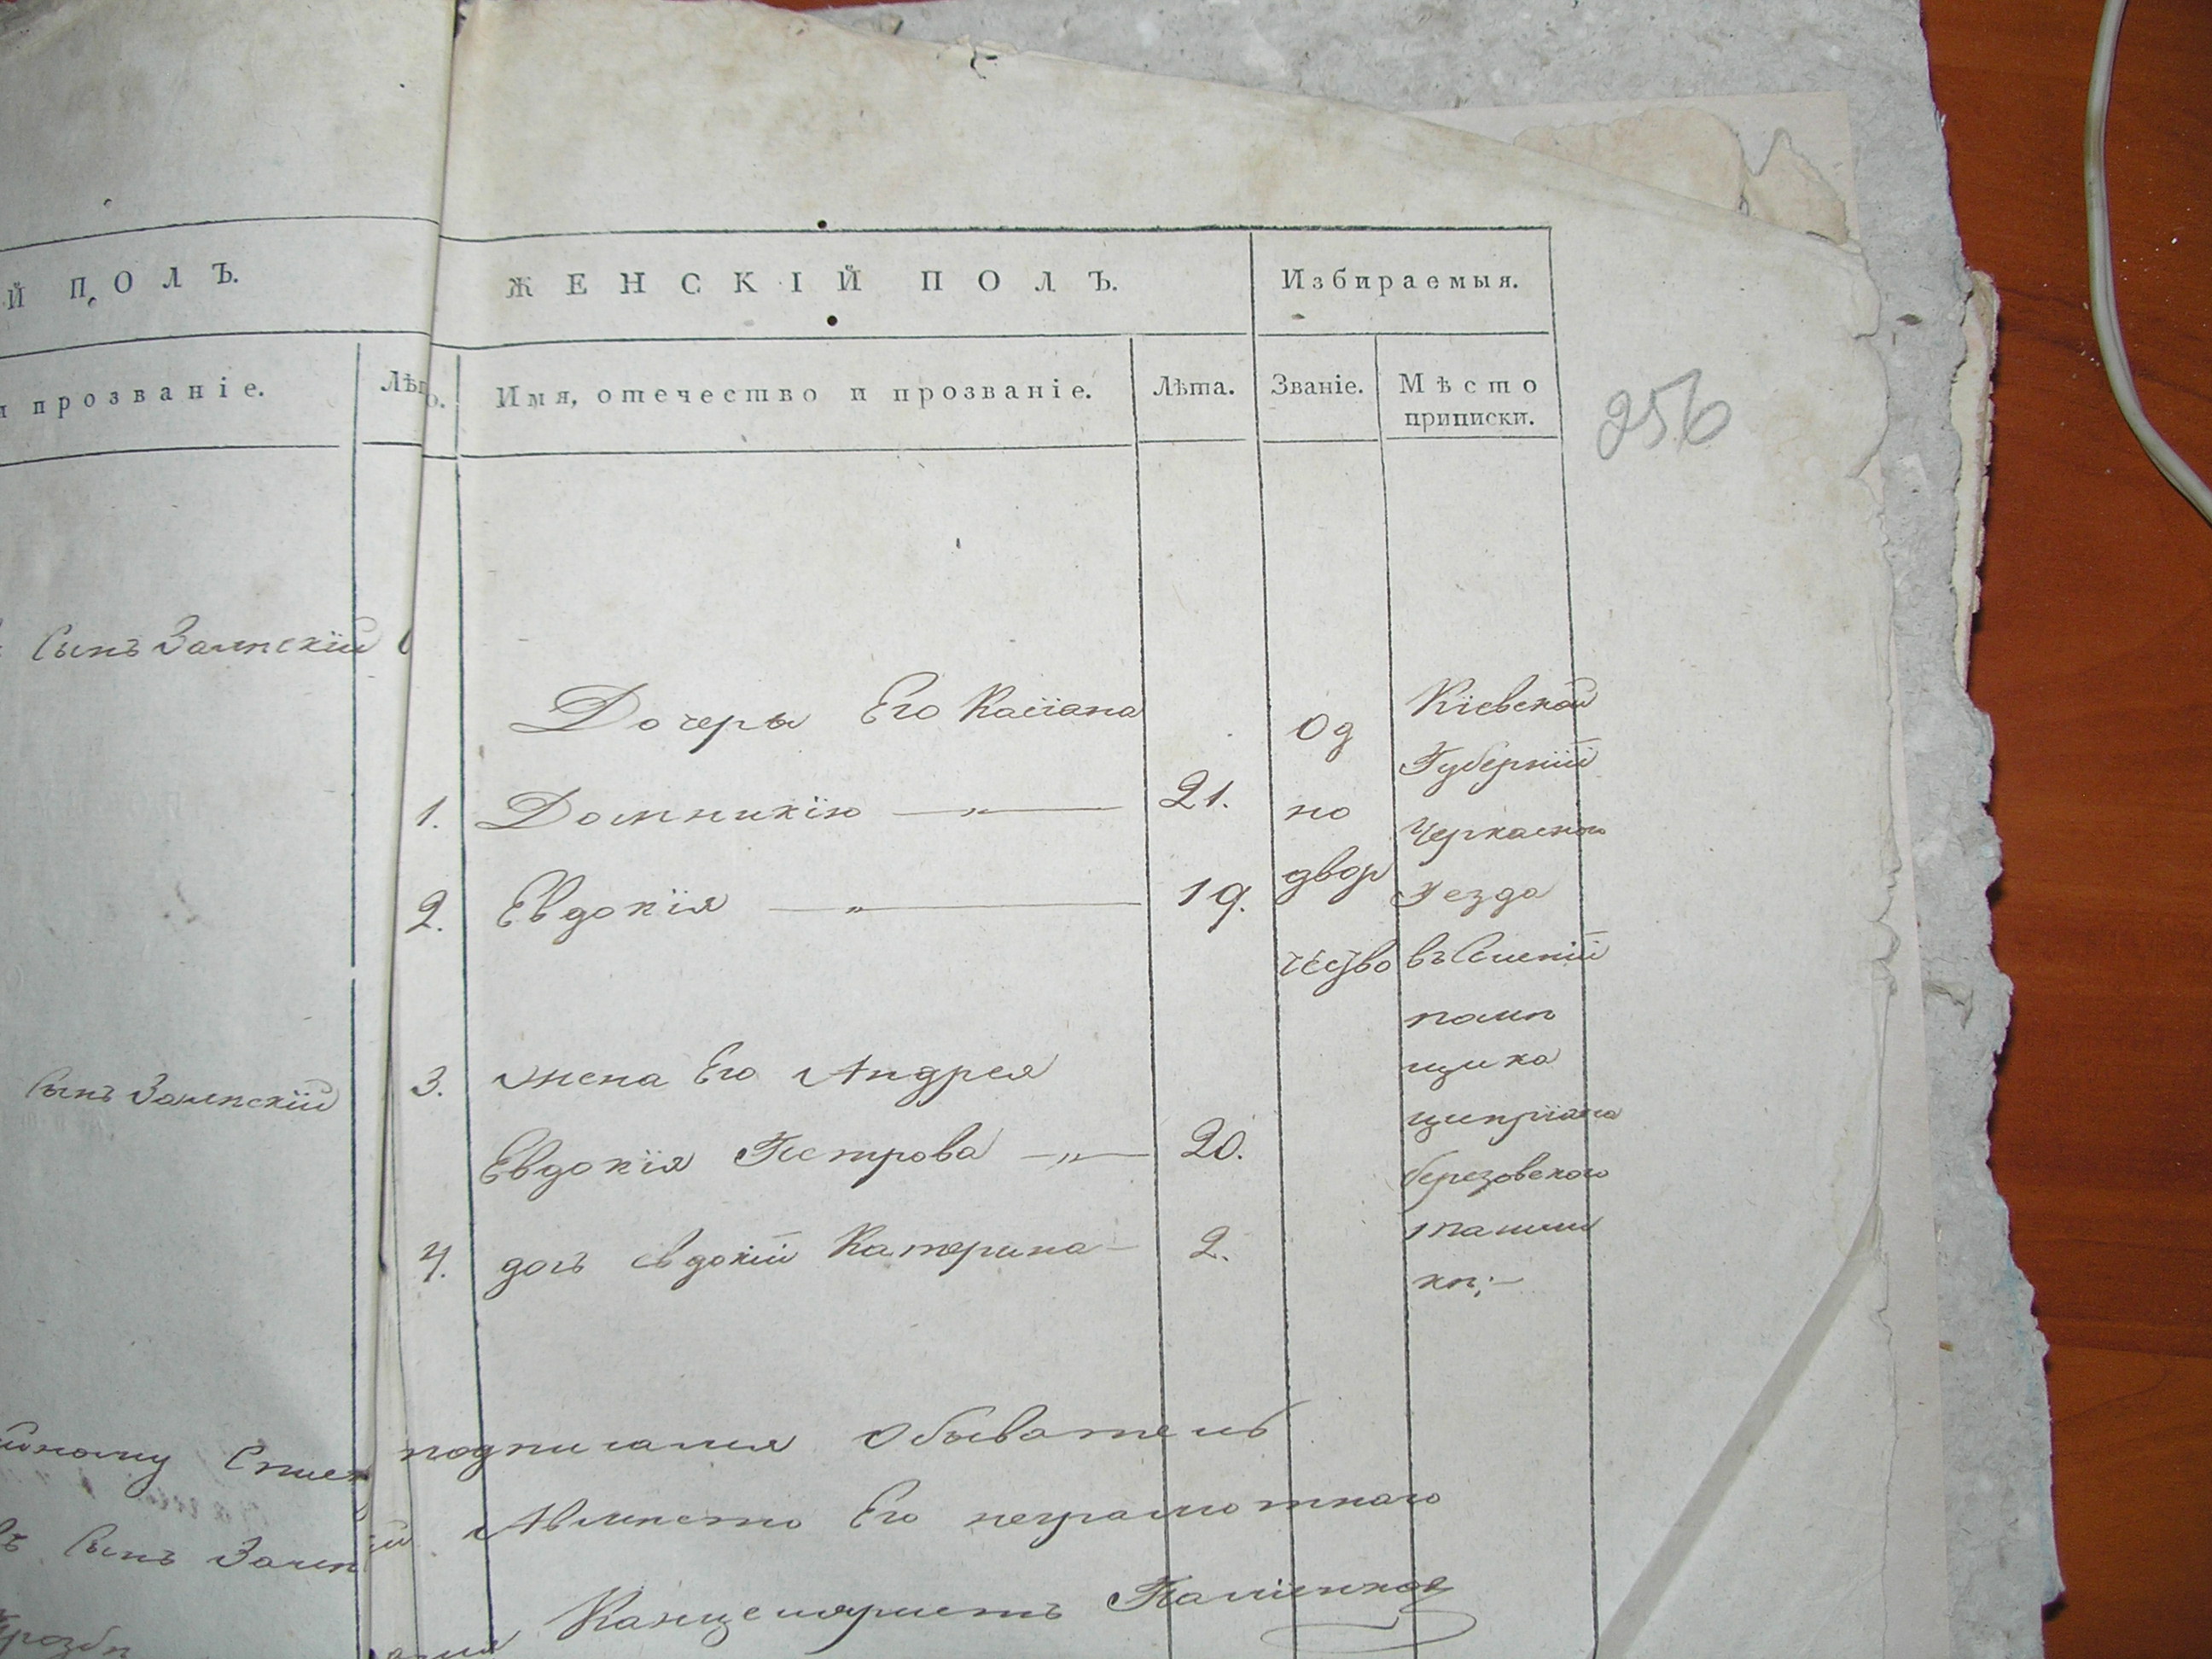 Й ПОЛЪ.
прозваніе.
Лѣт
Сынъ Залпскій
Сынъ Залпскій
Сынъ
ЖЕНСКІЙ ПОЛЪ.
Избираемыя.
Имя, отечество и прозваніе.
Лѣта.
Званіе.
Мѣсто
приписки.
256
Дочеры Его Касіана
1. Домникію — „ — 21.
2. Евдокія — „ — 19.
3. жена Его Андрея
Евдокія Петрова — „ — 20.
4. дочь евдокій Катерина — 2.
Од
но
двор
чество
Кіевской
Губерній
Черкаского
Уезда
въ
помп
щика
ципріана
березовского
кп;—
обыватель
Авмпсто Его неграмотнаго
Канцеляристъ